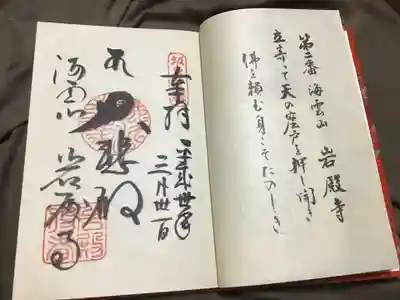 第二番 海雲山 岩殿寺
立寄りて天の岩戸を押し開き
佛を頼む身こそたのしき
奉拝 平成丗年
三月丗一日
大悲殿
海雲山 岩殿寺